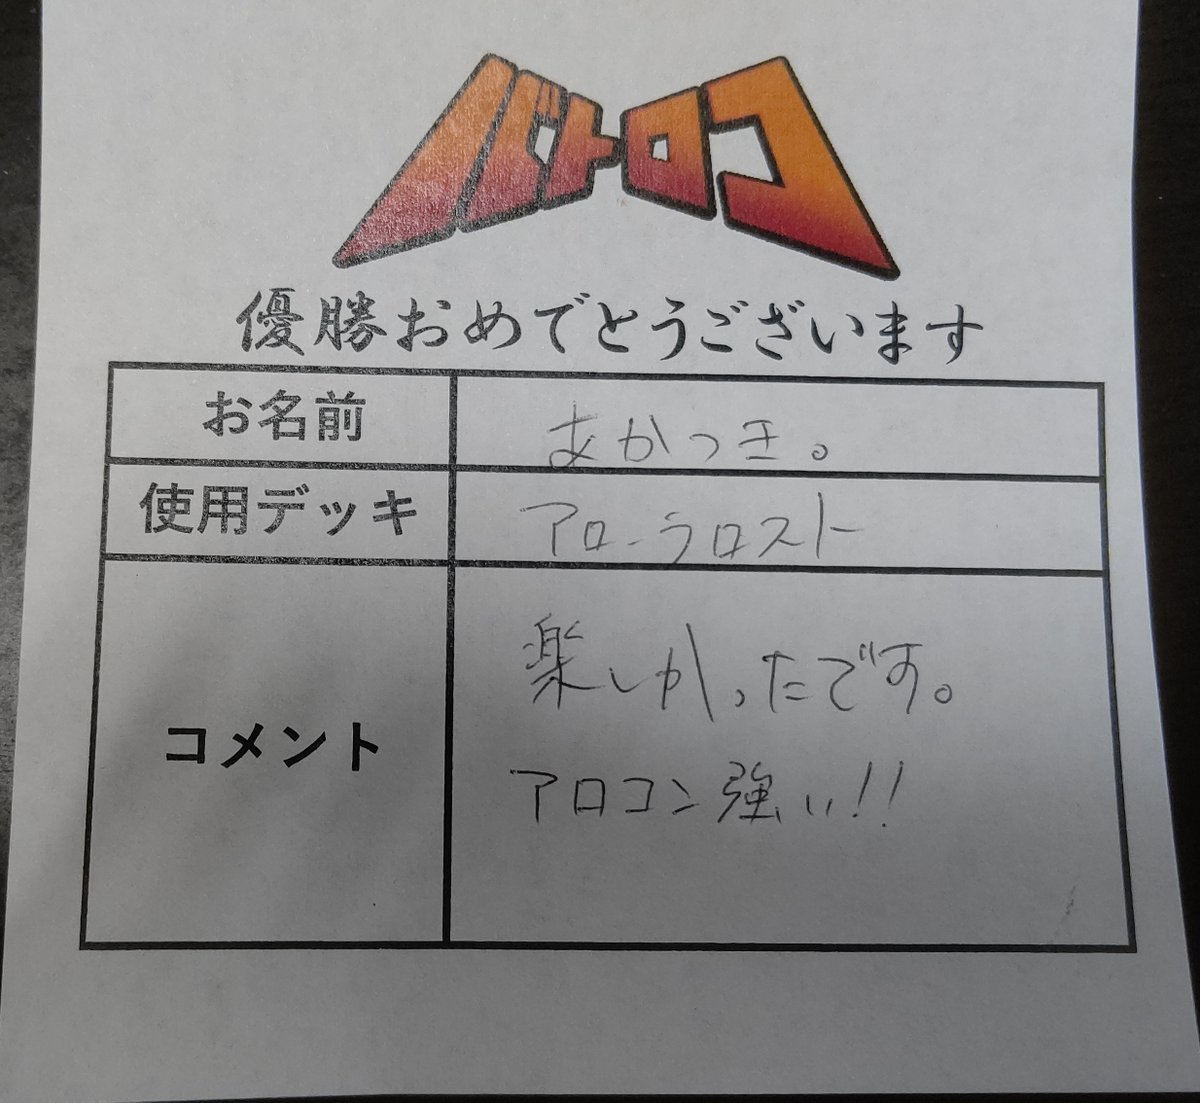 バトロコ
優勝おめでとうございます
お名前
あかつき。
使用デッキ
アローラロスト
コメント
楽しかったです。
アロコン強い!!